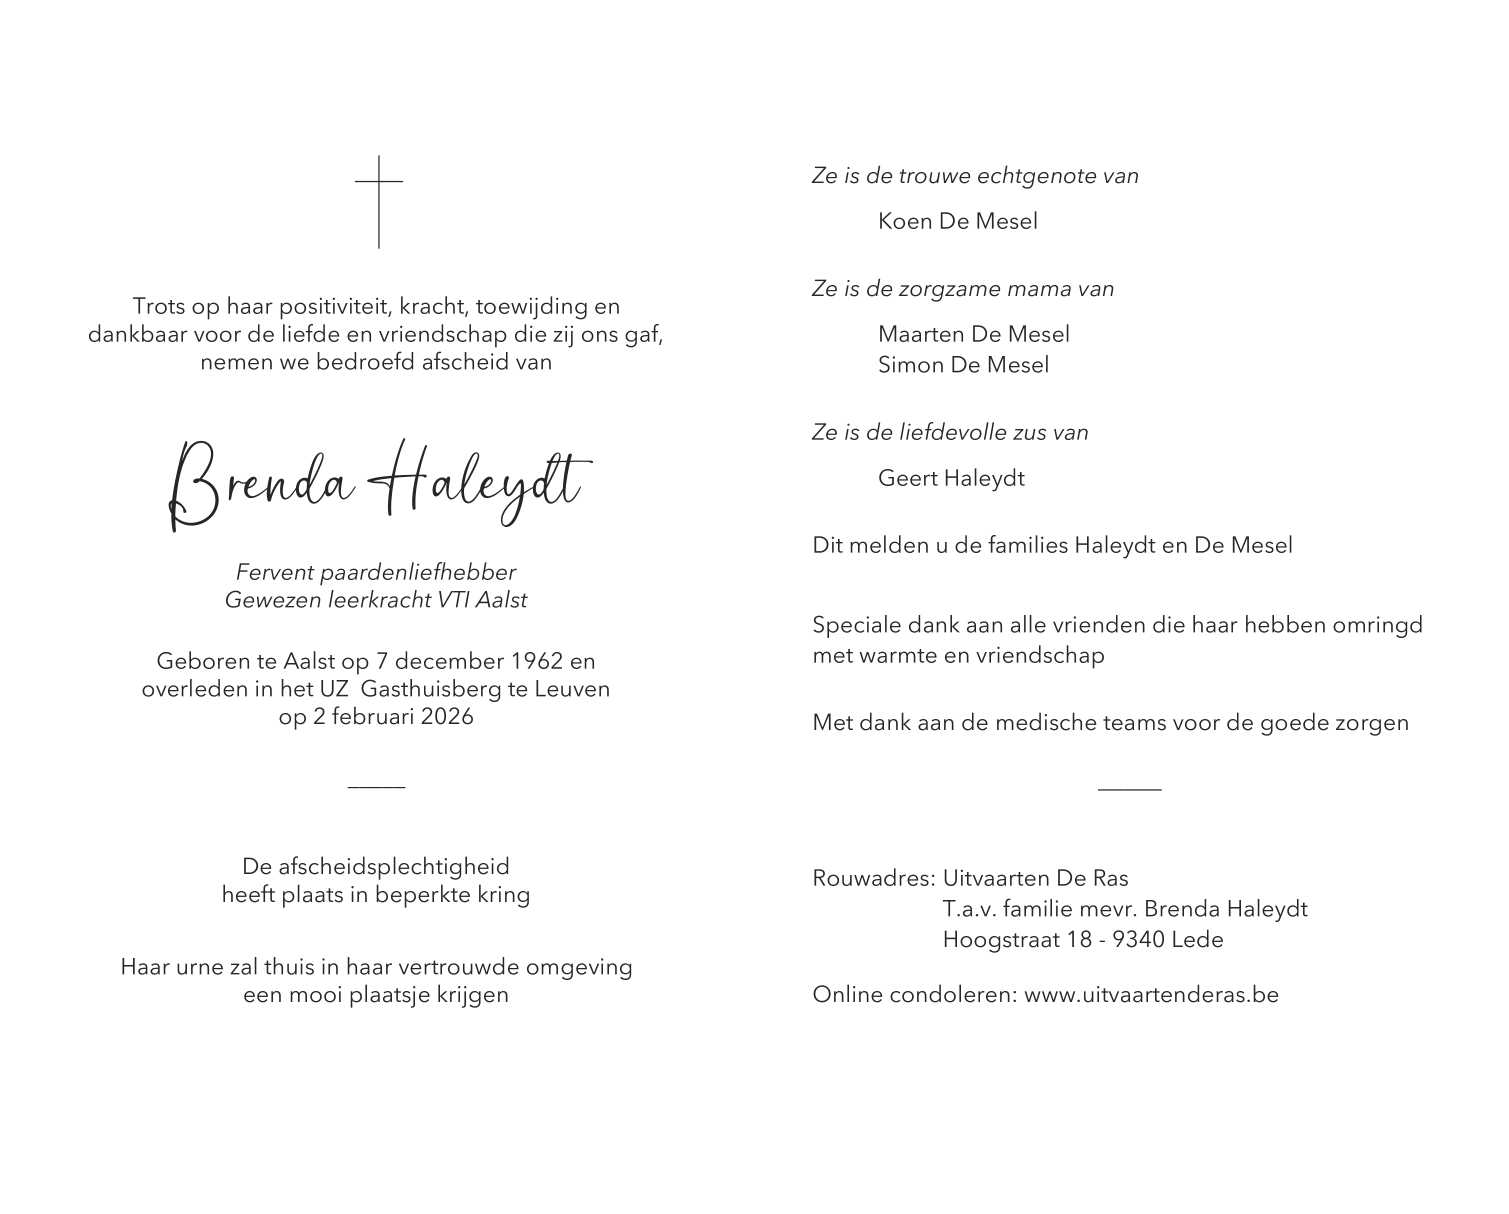 Trots op haar positiviteit, kracht, toewijding en
dankbaar voor de liefde en vriendschap die zij ons gaf,
nemen we bedroefd afscheid van
Brenda Haleydt
Fervent paardenliefhebber
Gewezen leerkracht VTI Aalst
Geboren te Aalst op 7 december 1962 en
overleden in het UZ  Gasthuisberg te Leuven
op 2 februari 2026
De afscheidsplechtigheid
heeft plaats in beperkte kring
Haar urne zal thuis in haar vertrouwde omgeving
een mooi plaatsje krijgen
Ze is de trouwe echtgenote van
Koen De Mesel
Ze is de zorgzame mama van
Maarten De Mesel
Simon De Mesel
Ze is de liefdevolle zus van
Geert Haleydt
Dit melden u de families Haleydt en De Mesel
Speciale dank aan alle vrienden die haar hebben omringd
met warmte en vriendschap
Met dank aan de medische teams voor de goede zorgen
Rouwadres: Uitvaarten De Ras
T.a.v. familie mevr. Brenda Haleydt
Hoogstraat 18 - 9340 Lede
Online condoleren: www.uitvaartenderas.be